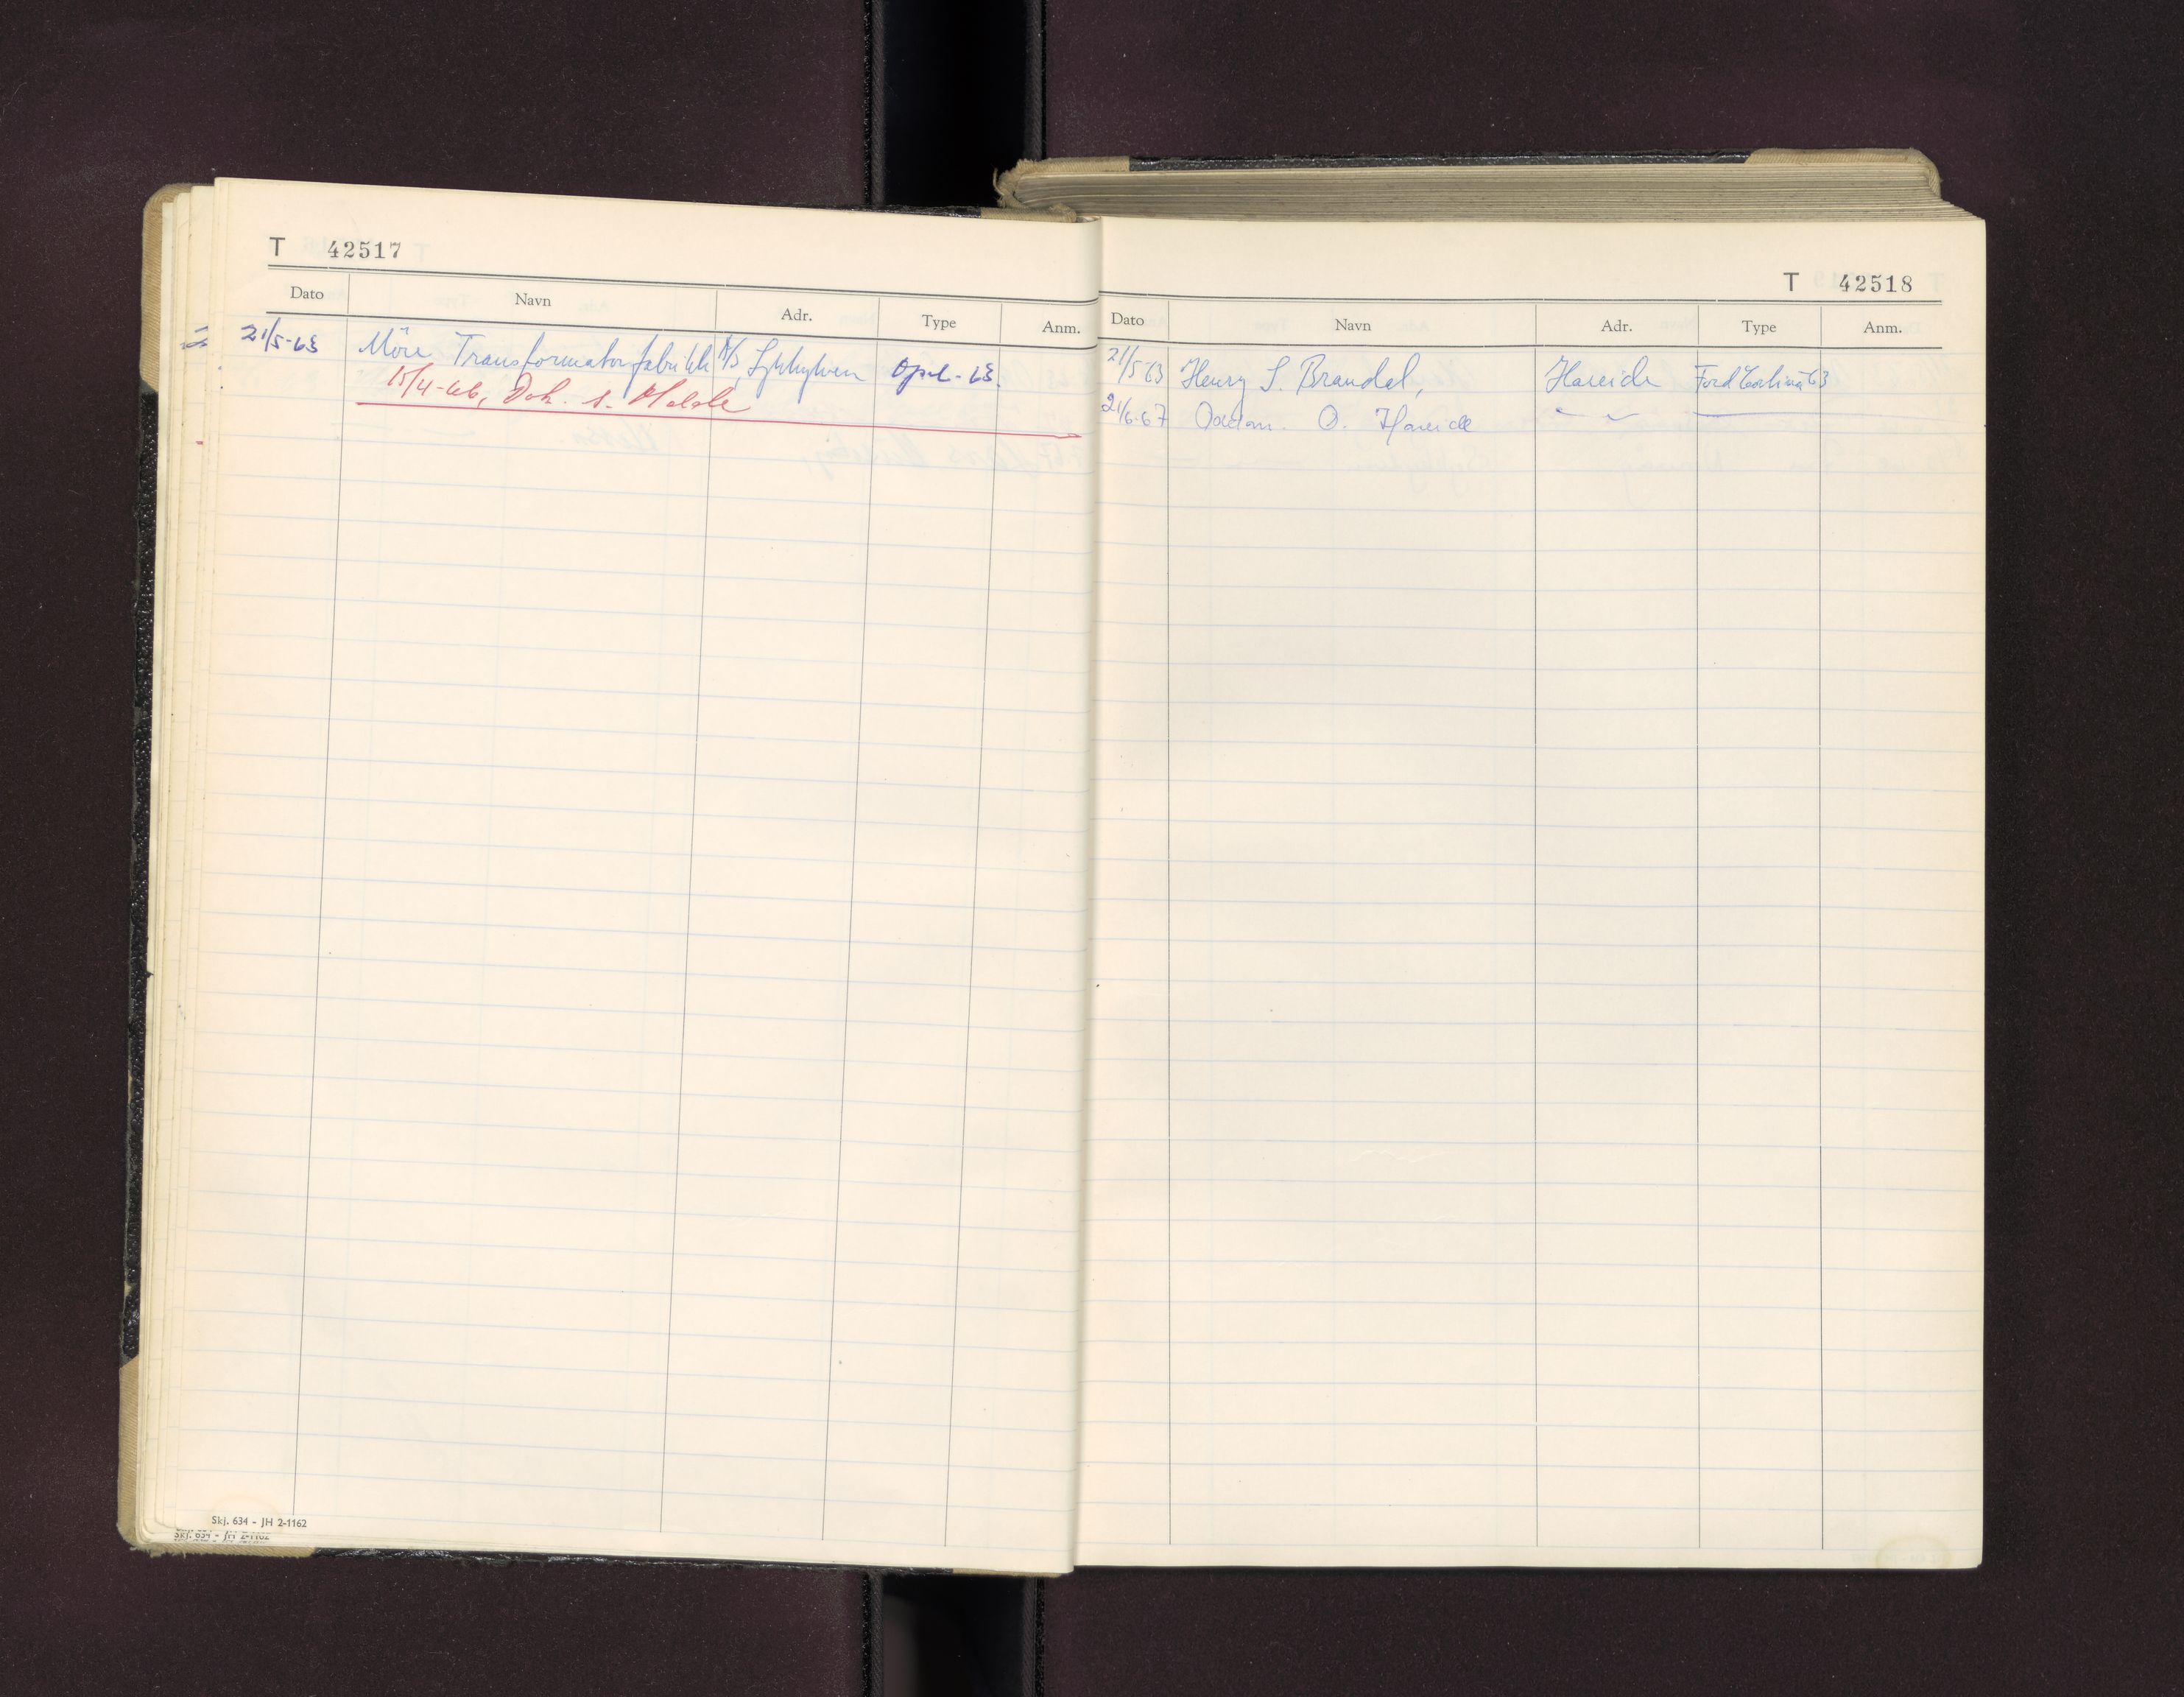 T 42517
Dato Navn Adr. Type Anm.
21/5-63 Möre Transformatorfabrikk A/S, Sykkylven Opel-63.
15/4-66, Dok. s. Molde
Skj. 634 - JH 2-1162
Skj. 634 - JH 2-1162
T 42518
Dato Navn Adr. Type Anm.
21/5 63 Henry S. Brandal, Hareide Ford Cortina 63
21/6-67 O. Hareide